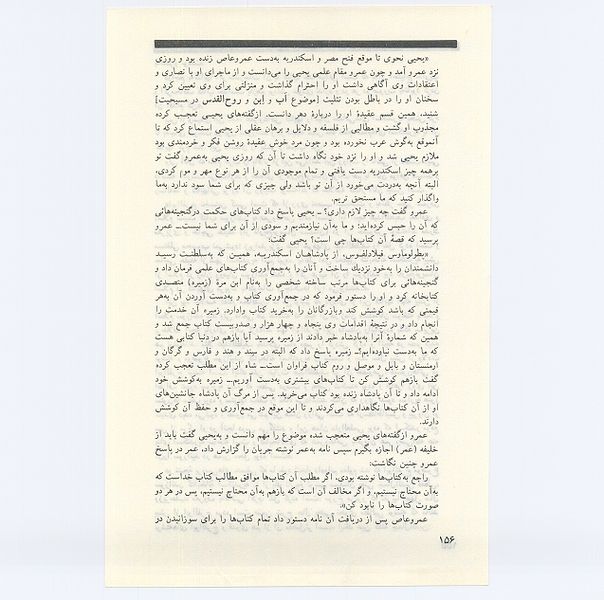 «یحیی نحوی تا موقع فتح مصر و اسکندریه به‌دست عمروعاص زنده بود و روزی
نزد عمرو آمد و چون عمرو مقام علمی یحیی را می‌دانست و از ماجرای او با نصاری و
اعتقادات وی آگاهی داشت او را احترام گذاشت و منزلتی برای وی تعیین کرد و
سخنان او را در باطل بودن تثلیث [موضوع اَب و اِبن و روح‌القدس در مسیحیت]
شنید، همین قسم عقیدهٔ او را دربارهٔ دهر دانست. ازگفته‌های یحیی تعجب کرده
مجذوب او گشت و مطالبی از فلسفه و دلایل و برهان عقلی از یحیی استماع کرد که تا
آنموقع به‌گوش عرب نخورده بود و چون مرد خوش عقیدهٔ روشن فکر و خردمندی بود
ملازم یحیی شد و او را نزد خود نگاه داشت تا آن که روزی یحیی به‌عمرو گفت تو
برهمه چیز اسکندریه دست یافتی و تمام موجودی آن را از هر نوع مهر و موم کردی،
البته آنچه به‌دردت می‌خورد از آن تو باشد ولی چیزی که برای شما سود ندارد به‌ما
واگذار کنید که ما مستحق تریم.
عمرو گفت چه چیز لازم داری؟ ـ یحیی پاسخ داد کتاب‌های حکمت درگنجینه‌هائی
که آن را حبس کرده‌اید؛ و ما به‌آن نیازمندیم و سودی از آن برای شما نیست ـ عمرو
پرسید که قصهٔ آن کتاب‌ها چی است؟ یحیی گفت:
«بطولوماوس فیلادلفوس، از پادشاهان اسکندریه، همین که به‌سلطنت رسید
دانشمندان را به‌خود نزدیك ساخت و آنان را به‌جمع‌آوری کتاب‌های علمی فرمان داد و
گنجینه‌هائی برای کتاب‌ها مرتب ساخته شخصی را به‌نام ابن مرة (زمیره) متصدی
کتابخانه کرد و او را دستور فرمود که در جمع‌آوری کتاب و به‌دست آوردن آن به‌هر
قیمتی که باشد کوشش کند وبازرگانان را به‌خرید کتاب وادارد. زمیره آن خدمت را
انجام داد و در نتیجهٔ اقدامات وی پنجاه و چهار هزار و صدوبیست کتاب جمع شد و
همین که شمارهٔ آنرا به‌پادشاه خبر دادند از زمیره پرسید آیا بازهم در دنیا کتابی هست
که ما به‌دست نیاورده‌ایم؟ـ زمیره پاسخ داد که البته در سند و هند و فارس و گرگان و
ارمنستان و بابل و موصل و روم کتاب فراوان است ـ شاه از این مطلب تعجب کرده
گفت بازهم کوشش کن تا کتاب‌های بیشتری به‌دست آوریم ـ زمیره به‌کوشش خود
ادامه داد و تا آن پادشاه زنده بود کتاب می‌خرید. پس از مرگ آن پادشاه جانشین‌های
او از آن کتاب‌ها نگاهداری می‌کردند و تا این موقع در جمع‌آوری و حفظ آن کوشش
دارند.
عمرو ازگفته‌های یحیی متعجب شده موضوع را مهم دانست و به‌یحیی گفت باید از
خلیفه (عمر) اجازه بگیرم سپس نامه به‌عمر نوشته جریان را گزارش داد، عمر در پاسخ
عمرو چنین نگاشت:
راجع به‌کتاب‌ها نوشته بودی، اگر مطلب آن کتاب‌ها موافق مطالب کتاب خداست که
به‌آن محتاج نیستیم، و اگر مخالف آن است که بازهم به‌آن محتاج نیستیم، پس در هر دو
صورت کتاب‌ها را نابود کن».
عمروعاص پس از دریافت آن نامه دستور داد تمام کتاب‌ها را برای سوزانیدن در
۱۵۶